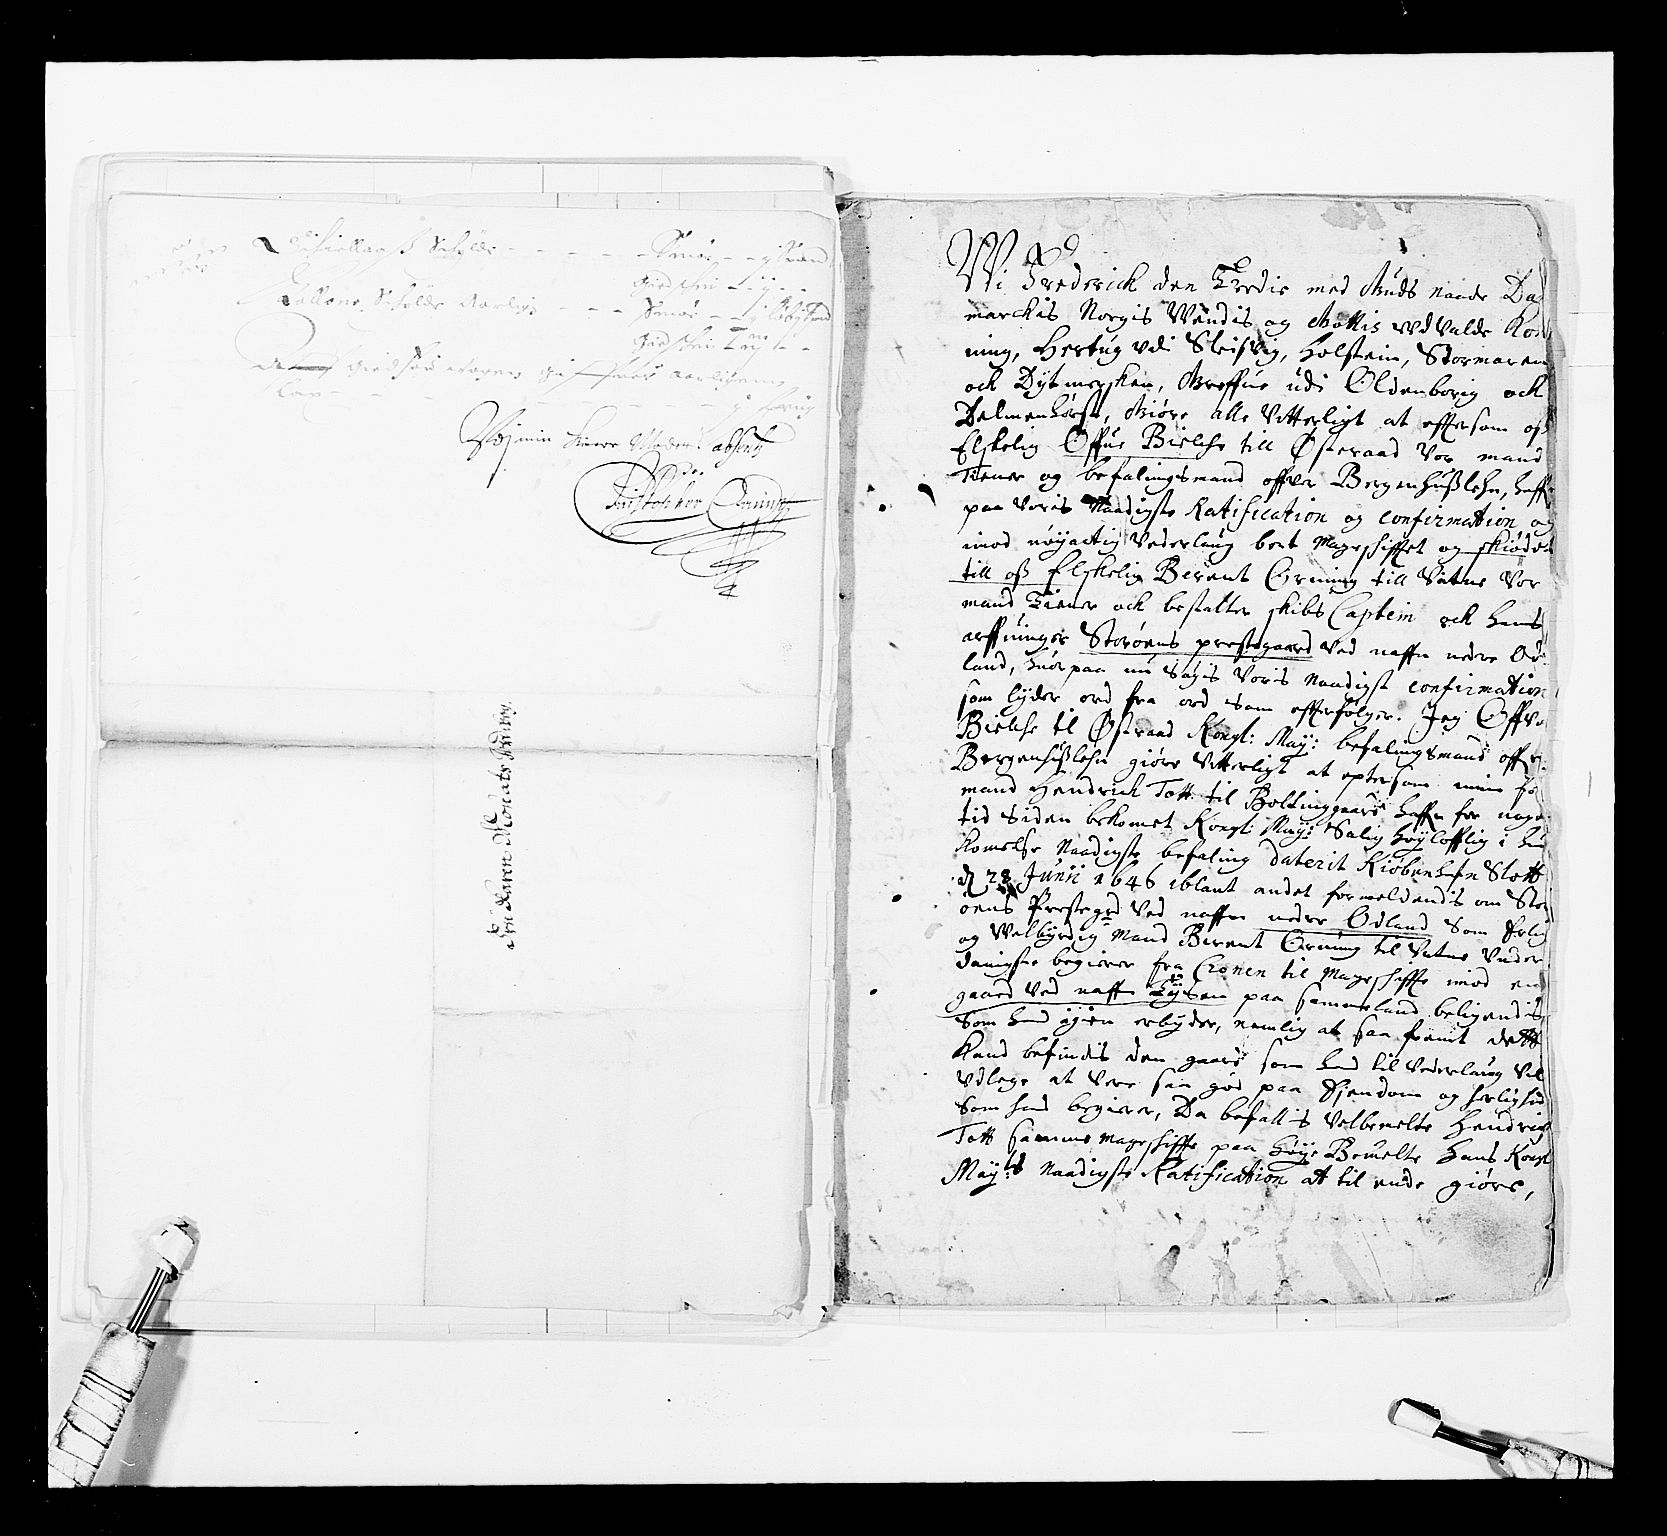 Schylde - - - - Smør - -
Schylde Aarligen - - - Smør - -
aarligen
Kiere Moders absens
Christopher Orning
Fru Karen Mouats
Wi Frederich den Tredie med Guds Naade Da
marckis Norgis Wendis og Gottis Udvalde Kon
ning, Hertug udi Slesvig, Holstein, Stormaren
och Dytmersken, Greffue udi Oldenborig och
Delmenhorst, Giøre Alle Vitterligt at effter som oß
Elskelig Offue Bielche till Østeraad Vor mand
Tiener og befalingsmand offver Bergenhußlehn, haffr
paa Voris Naadigste Ratification og confirmation og
imod nøyactig Vederlaug bort Mageskifftet og skiødet
till oß Elskelig Berent Orning till Vatne Vor
mand Tiener och bestalter skibs Captein och hans
arffuinger Storøens prestegaard ved naffn nedre Od
land, huor paa nu Søgis Voris Naadigst confirmation
som lyder ord fra ord som effterfølger. Jeg Offve
Bielche til Østeraad Kongl: May: befalingsmand offr
Bergenhußlehn giøre Vitterligt at epter som min for
mand Hendrich Tott til Boltinggaard haffr for nogen
tid siden bekomet Kongl: May: Salig høylofflig i hu
komelse Naadigste befaling daterit Kiøbenhafn Slott
d 28 Junii 1646 iblant andet formeldendis om Stor
øens Prestegrd Ved naffn nedre Odland Som Erlig
og Welbyrdig Mand Berent Orning til Vatne Under
danigste begierer fra Cronen til Mageskiffte imod en
gaard Ved naffn Tysen paa sammeland beligendis
Som hand igien erbyder, nemlig at saa fremt dette
kand befindis den gaard som hand til Vederlaug Vil
Udlege at Vere saa god paa Eyendom og herlighed
Som hand begierer, Da befallis Velbemelte Hendrich
Tott samme mageskiffte paa høye Bemelte Hans Kongl
May:ts Naadigste Ratification at til ende giøre,